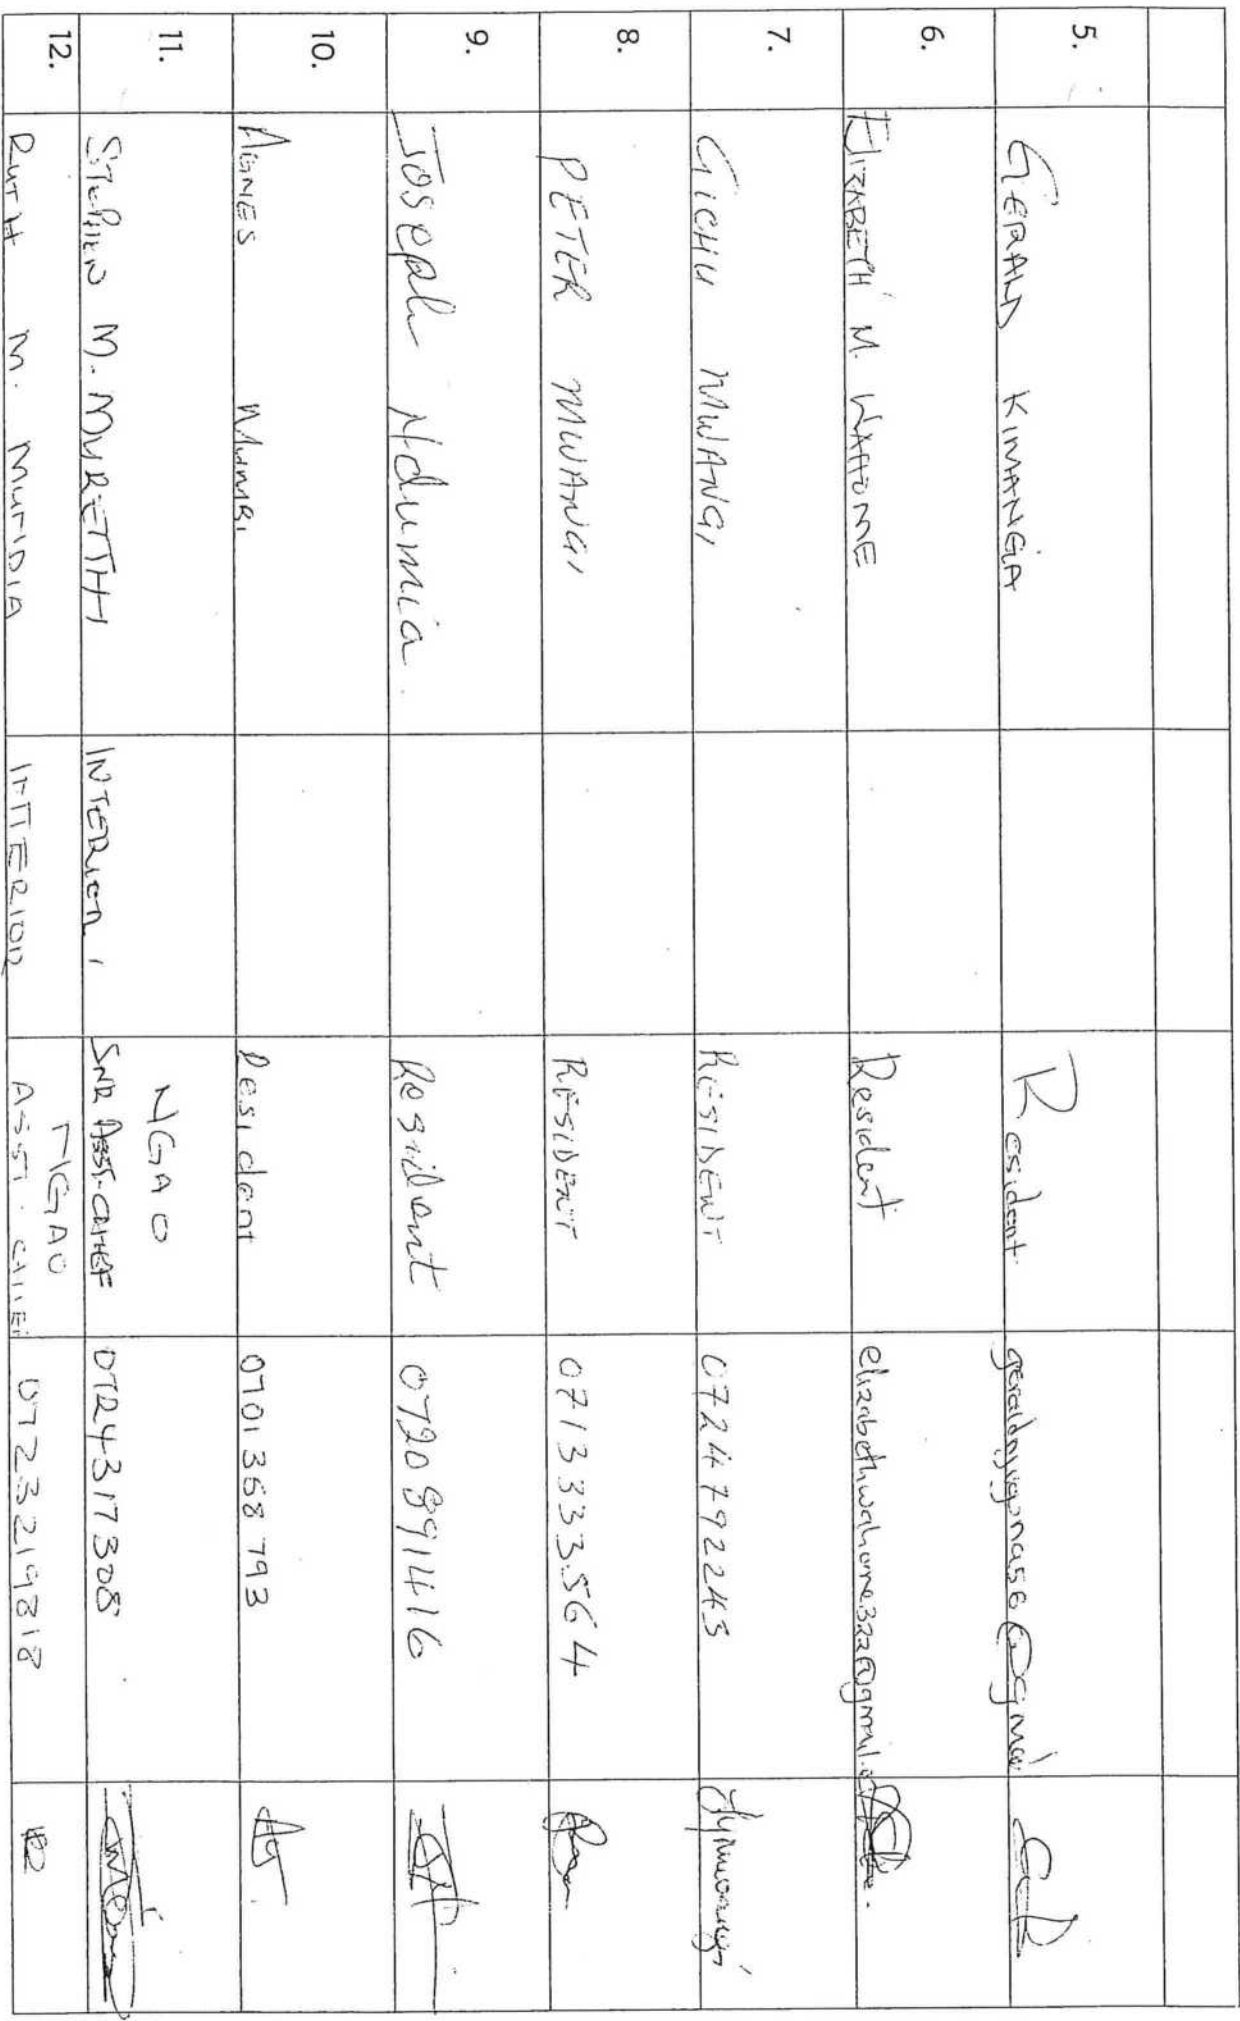 5. GERALD KIMANGA Resident
6. ELIZABETH M. WAHOME Resident elizabethwahome322@gmail.
7. GICHU MWANGI RESIDENT 0724792245
8. PETER MWANGI RESIDENT 0713333564
9. Joseph Ndumia. Resident 0720891416
10. AGNES MUMBI Resident 0701358793
11. STEPHEN M. MURIITHI INTERIOR NGAO
SNR ASST. CHIEF 0724317308
12. RUTH M. MURIDIA INTERIOR NGAO
ASST. CHIEF 0723219818